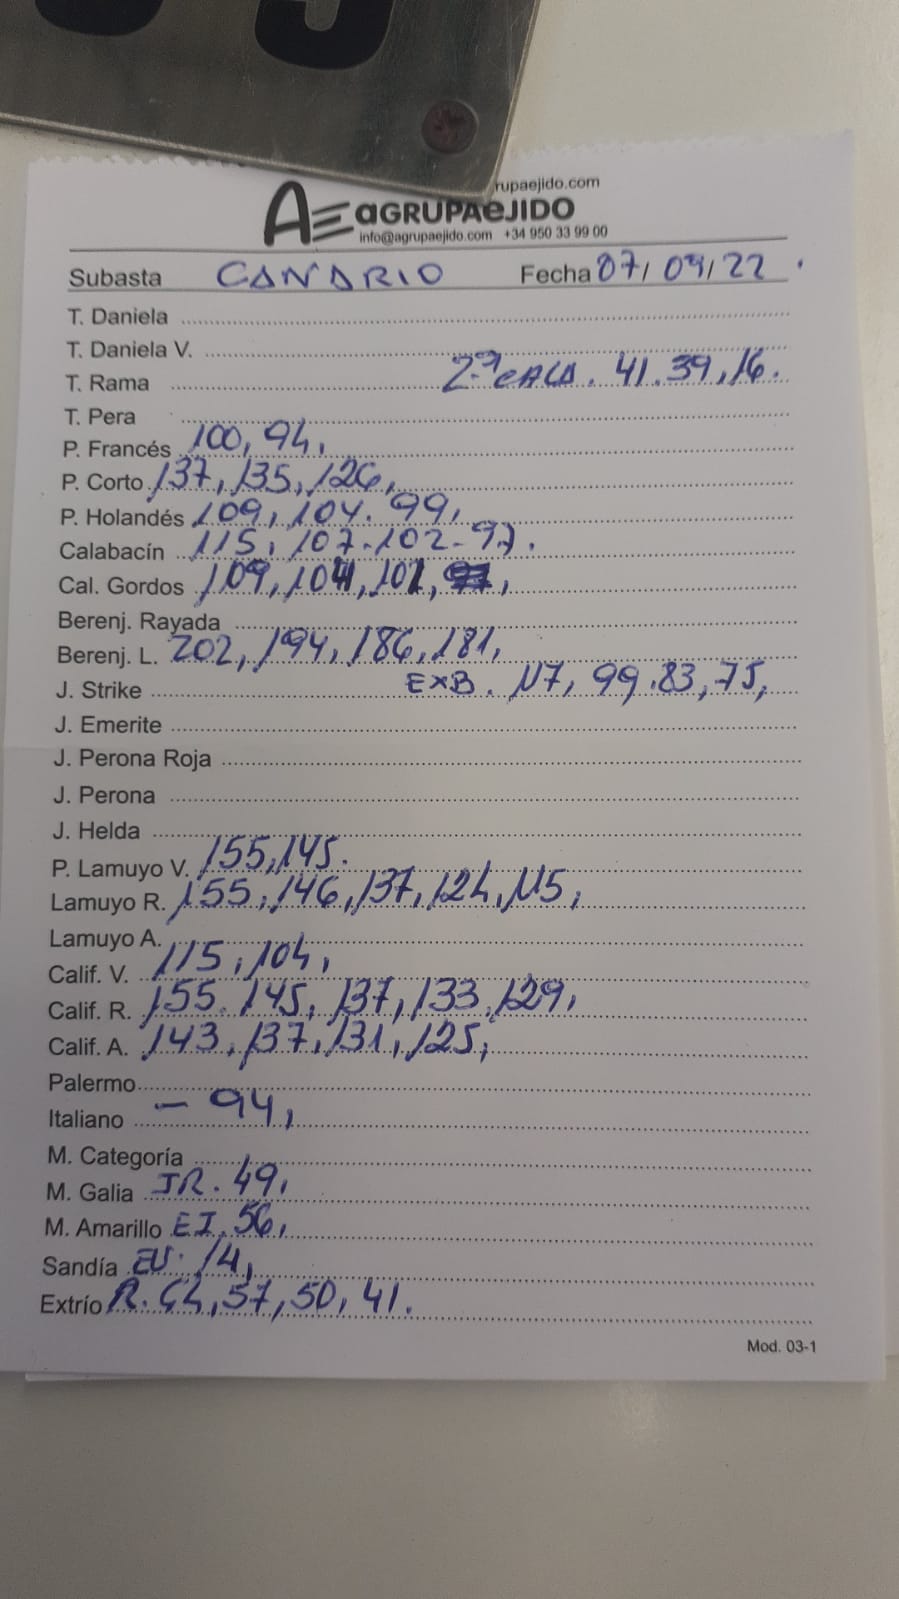 rupaejido.com
AE aGRUPAeJIDO
info@agrupaejido.com +34 950 33 99 00
Subasta CANARIO Fecha 07/09/22.
T. Daniela
T. Daniela V.
T. Rama 2ª CALA. 41.39,16.
T. Pera
P. Francés 100, 94,
P. Corto 137, 135, 126,
P. Holandés 109, 104. 99,
Calabacín 115, 107-102-97.
Cal. Gordos 109, 104, 102,
Berenj. Rayada
Berenj. L. 202, 194, 186, 181,
J. Strike EXB. 117, 99.83, 75,
J. Emerite
J. Perona Roja
J. Perona
J. Helda
P. Lamuyo V. 155, 145.
Lamuyo R. 155, 146, 137, 124, 115,
Lamuyo A.
Calif. V. 115, 104,
Calif. R. 155. 145, 137, 133, 129,
Calif. A. 143, 137, 131, 125,
Palermo
Italiano - 94,
M. Categoría
M. Galia JR. 49,
M. Amarillo EI. 56,
Sandía 14,
Extrío R. 64, 57, 50, 41.
Mod. 03-1